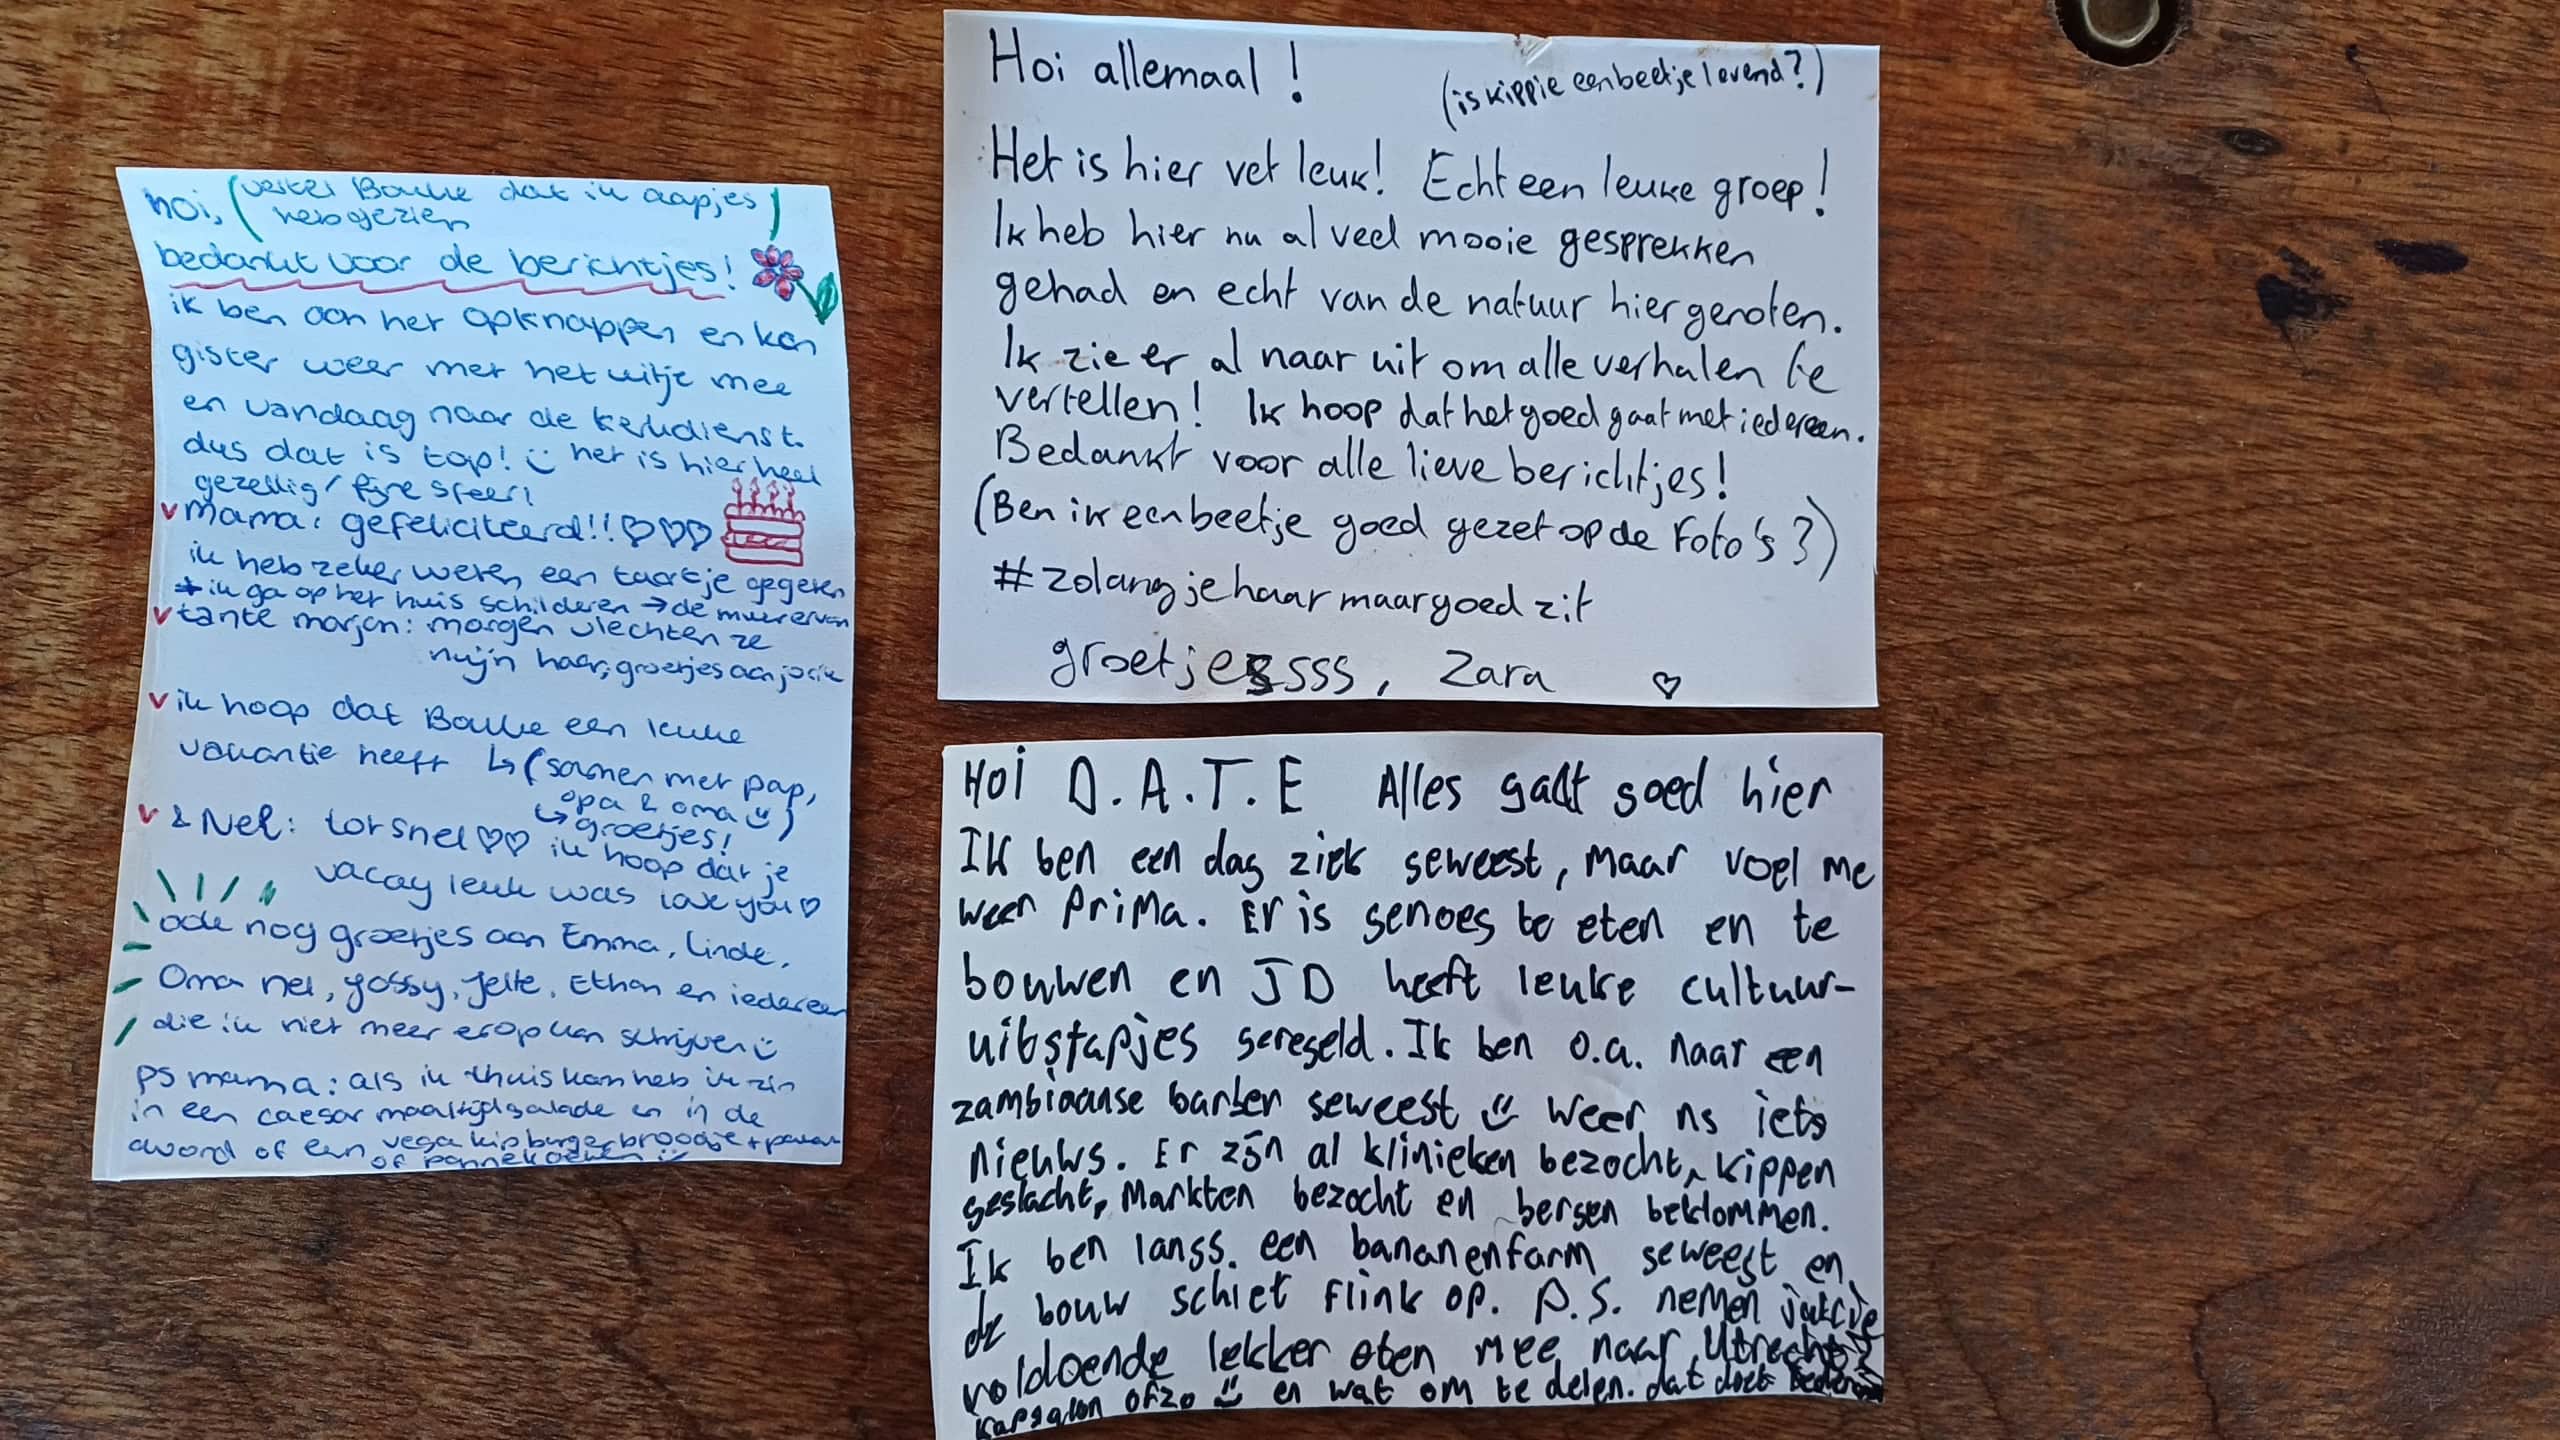 hoi, (vertel Bouke dat ik aapjes
heb gezien)
bedankt voor de berichtjes!
ik ben aan het opknappen en kon
gister weer met het uitje mee
en vandaag naar de kerkdienst.
dus dat is top! het is hier heel
gezellig/fijne sfeer!
v mama: gefeliciteerd!! ♡♡♡
ik heb zeker weten een taartje gegeten
* ik ga op het huis schilderen → de muur erven
v tante marjon: morgen vlechten ze
mijn haar, groetjes aan
v ik hoop dat Bouke een leuke
vakantie heeft ↳ (samen met pap,
opa & oma ☺)
↳ groetjes!
v & Nel: tot snel ♡♡ ik hoop dat je
vacay leuk was love you ♡
ook nog groetjes aan Emma, Linde,
Oma nel, yossy, Jelte, Ethan en iedereen
die ik niet meer erop kan schrijven ☺
ps mama: als ik thuis kom heb ik zin
in een caesar maaltijdsalade en in de
avond of een vega kipburger broodje +
of pannekoeken ☺
Hoi allemaal! (is kippie een beetje levend?)
Het is hier vet leuk! Echt een leuke groep!
Ik heb hier nu al veel mooie gesprekken
gehad en echt van de natuur hier genoten.
Ik zie er al naar uit om alle verhalen te
vertellen! Ik hoop dat het goed gaat met iedereen.
Bedankt voor alle lieve berichtjes!
(Ben ik een beetje goed gezet op de Foto's?)
#zolangjehaarmaargoedzit
groetjesssss, Zara ♡
Hoi D.A.T.E Alles gaat goed hier
Ik ben een dag ziek geweest, maar voel me
weer prima. Er is genoeg te eten en te
bouwen en JD heeft leuke cultuur-
uitstapjes geregeld. Ik ben o.a. naar een
zambiaanse barber geweest ☺ weer ns iets
nieuws. Er zijn al klinieken bezocht, kippen
geslacht, markten bezocht en bergen beklommen.
Ik ben langs een bananenfarm geweest en
de bouw schiet flink op. P.S. nemen jullie
voldoende lekker eten mee naar Utrecht?
Kapsalon ofzo ☺ en wat om te delen. dat doet